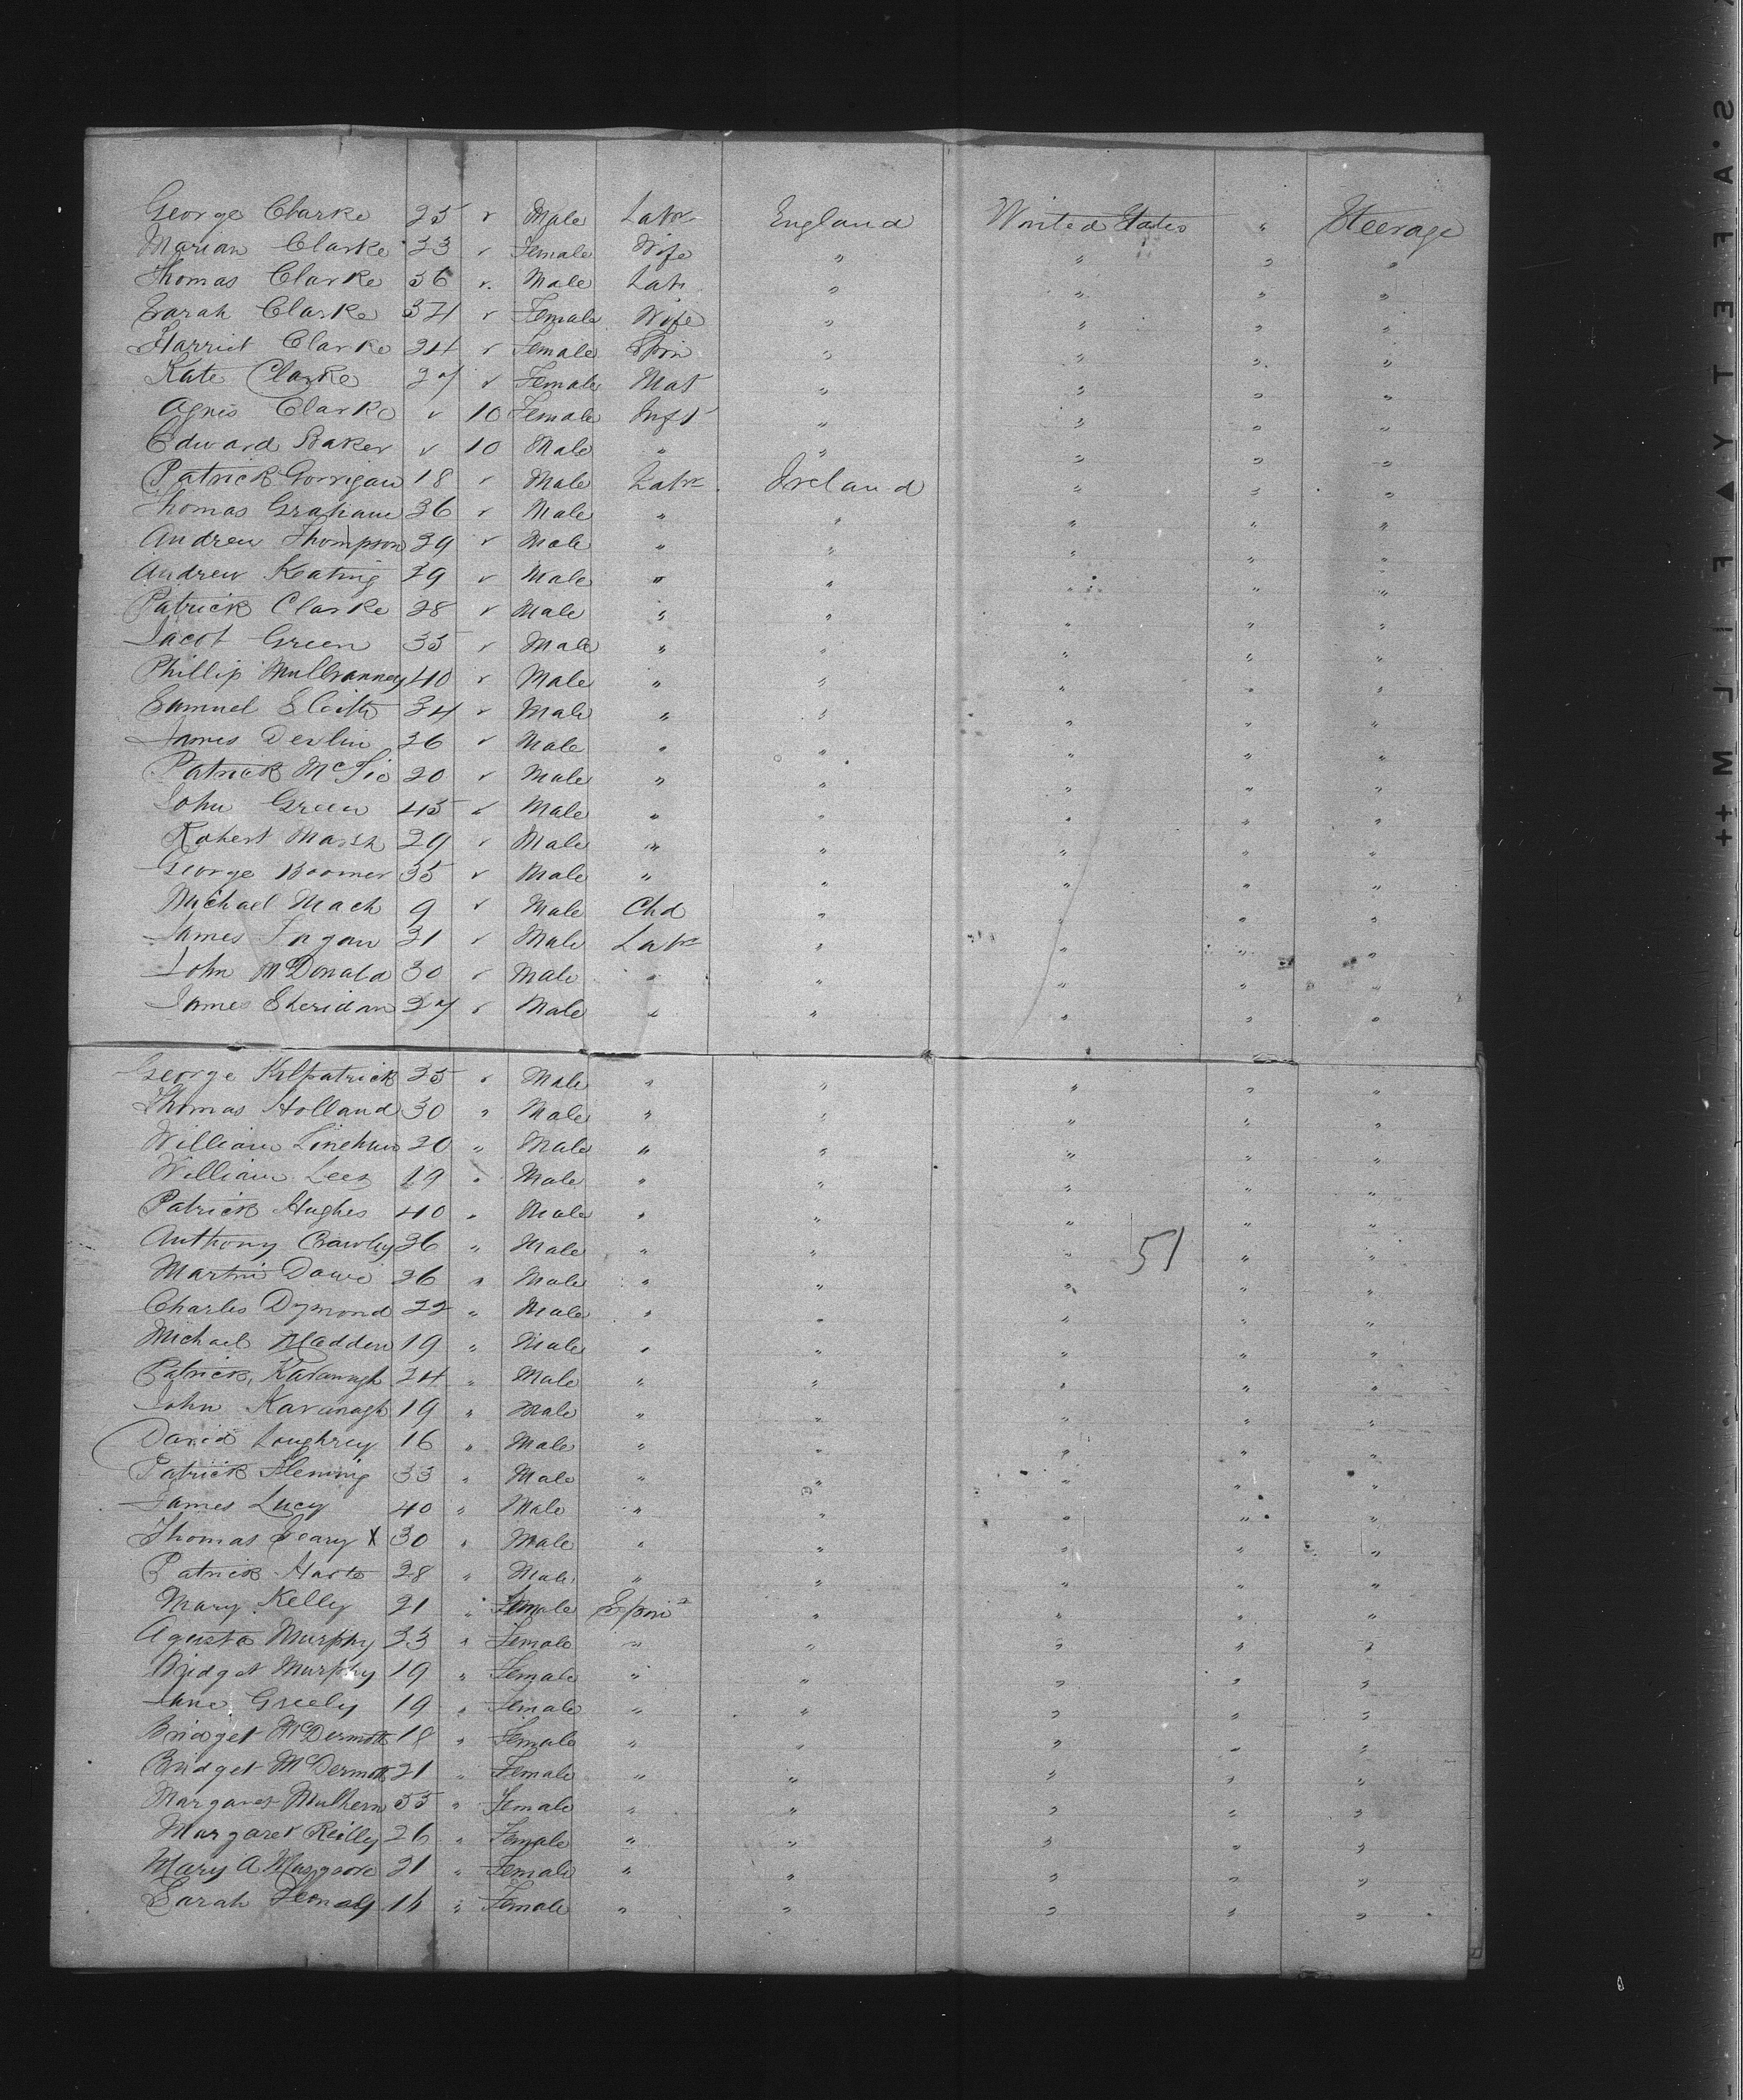 George Clarke 25 " Male Labr England United States " Steerage
Marian Clarke 23 " Female Wife " " " "
Thomas Clarke 36 " Male Labr " " " "
Sarah Clarke 34 " Female Wife " " " "
Harriet Clarke 24 " Female Spin " " " "
Kate Clarke 27 " Female Mat " " " "
Agnis Clarke " 10 Female Inft " " " "
Edward Baker " 10 Male " " " " "
Patrick Gorrigan 18 " Male Labr Ireland " " "
Thomas Graham 36 " Male " " " " "
Andrew Thompson 39 " Male " " " " "
Andrew Keating 29 " Male " " " " "
Patrick Clarke 28 " Male " " " " "
Jacob Green 35 " Male " " " " "
Phillip Mulvanney 40 " Male " " " " "
Samuel 34 " Male " " " " "
James Devlin 36 " Male " " " " "
Patrick 20 " Male " " " " "
John Green 45 " Male " " " " "
Robert Marsh 29 " Male " " " " "
George Boomer 35 " Male " " " " "
Michael Mack 9 " Male Chd " " " "
James Fagan 31 " Male Labr " " " "
John McDonald 30 " Male " " " " "
James Sheridan 27 " Male " " " " "
George Kilpatrick 35 " Male " " " " "
Thomas Holland 30 " Male " " " " "
William Linehan 20 " Male " " " " "
William Lees 19 " Male " " " " "
Patrick Hughes 40 " Male " " " " "
Anthony Crawley 36 " Male " " " 51 " "
Martin 26 " Male " " " " "
Charles Dymond 22 " Male " " " " "
Michael Madden 19 " Male " " " " "
Patrick Kavanagh 24 " Male " " " " "
John Kavanagh 19 " Male " " " " "
David Loughrey 16 " Male " " " " "
Patrick Fleming 33 " Male " " " " "
James Lucy 40 " Male " " " " "
Thomas Geary X 30 " Male " " " " "
Patrick Harte 28 " Male " " " " "
Mary Kelly 21 " Female Spin " " " "
Agusta Murphy 33 " Female " " " " "
Bridget Murphy 19 " Female " " " " "
Jane Greely 19 " Female " " " " "
Bridget McDermott 18 " Female " " " " "
Bridget McDermott 21 " Female " " " " "
Margaret Mulhern 55 " Female " " " " "
Margaret Reilly 26 " Female " " " " "
Mary A Musgrove 21 " Female " " " " "
Sarah 16 " Female " " " " "